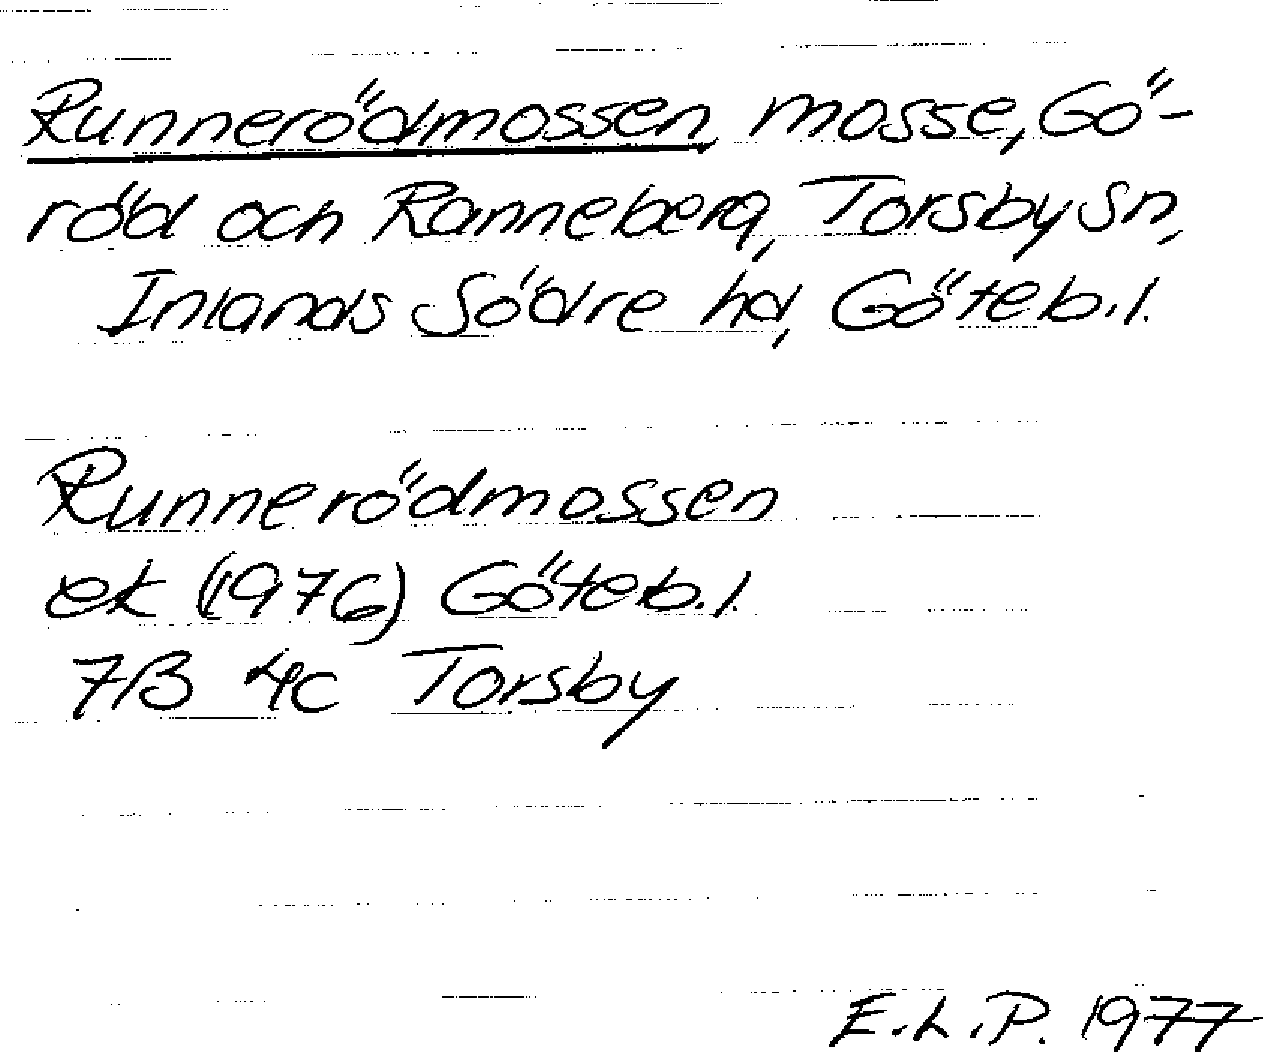 Runnerödmossen, mosse, Gö-
röd och Ranneberg, Torsby sn,
Inlands Södre hd, Göteb.l.
Runnerödmossen
ek (1976) Göteb.l.
7B 4c Torsby
E.L.P. 1977